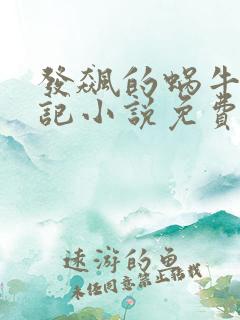 發飆的蝸牛
記小說免費
遠游的魚
未经同意禁止转载